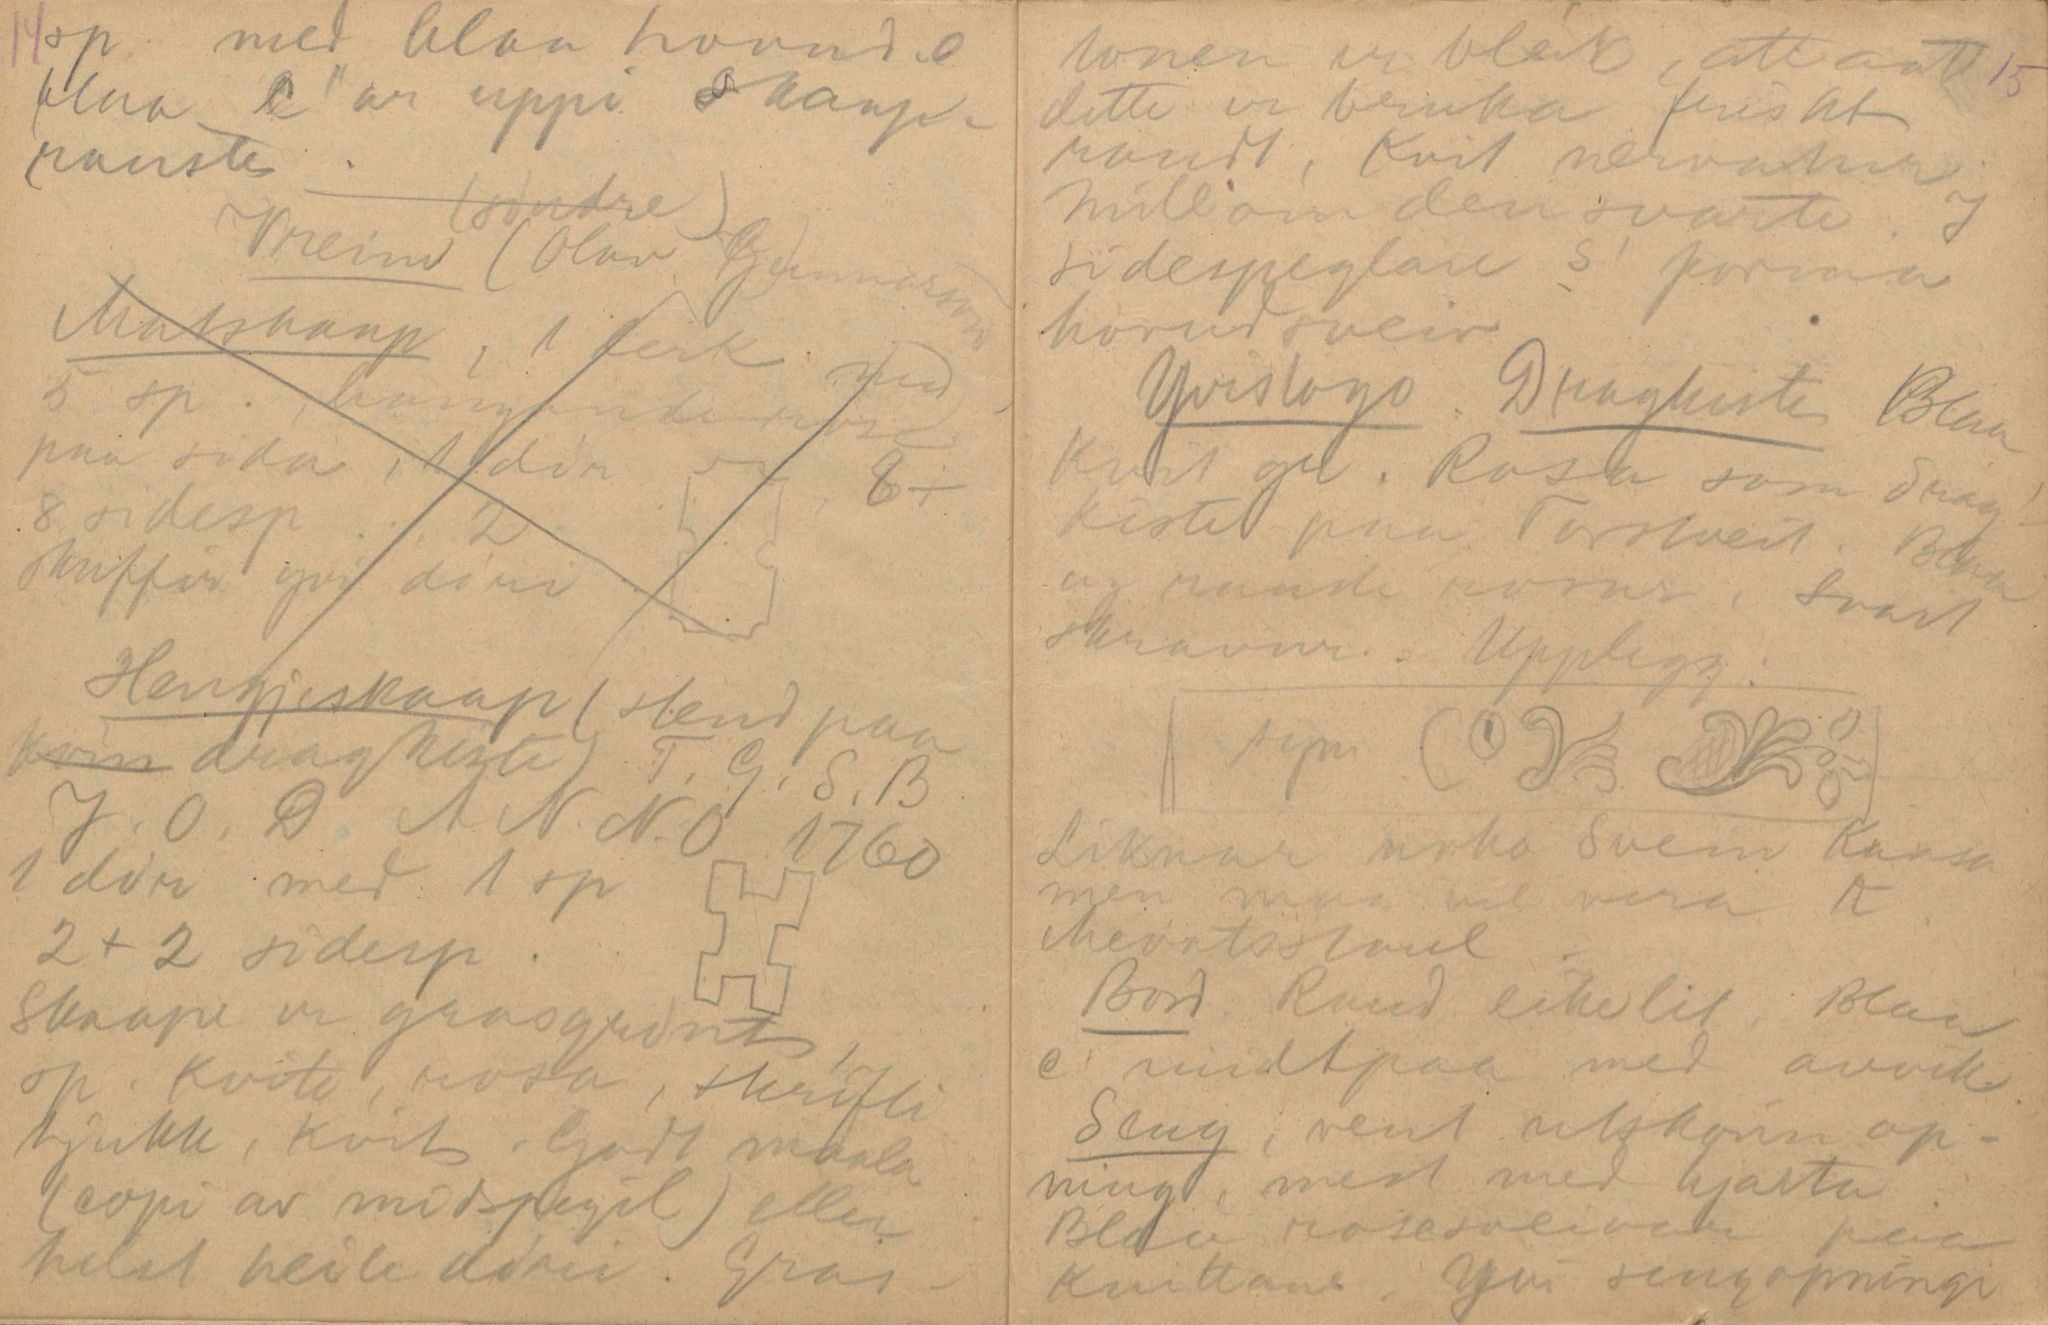 14
sp. med blaa hovud. C
blaa C" ar uppi skaap-
rauste.
(söndre)
Vreim (Olav Gunnarson
Matskaap, 1 ferk. med
5 sp., hangande rose
paa sida, 1 dör og 8+
8 sidesp. 2
skuffur yvi döri.
Hengjeskaap (stend paa
kvin dragkiste) T. G. S. B
J. O. D. A N. N. O 1760
1 dör med 1 sp
2 + 2 sidesp.
Skaape er grasgrönt,
sp. kvite, rosa, skrifti
tjukk, kvit. Godt maala
(copi av midspegil) eller
helst heile döri. Gras-
15
tonen er bleik, att aat
dette er bruka friskt
raudt, kvit nervatur
millom den svarte. I
sidespeglane S' forma
hovudsveiv
Yvistogo. Dragkiste Blaa
kvit gr. Rosa som drag-
kiste paa Torstveit. Blaa
og raude rosur, svart
skravur. Upplegg.
sym
Liknar noko Svein Kaasa
men maa vel vera K
Mevatsstaul.
Bord. Raud eikelit. Blaa
C' midtpaa med avvik.
Seng, vent utskorin op-
ning, mest med hjarta.
Blaa rosesveivar paa
knittane. Yvi sengopningi